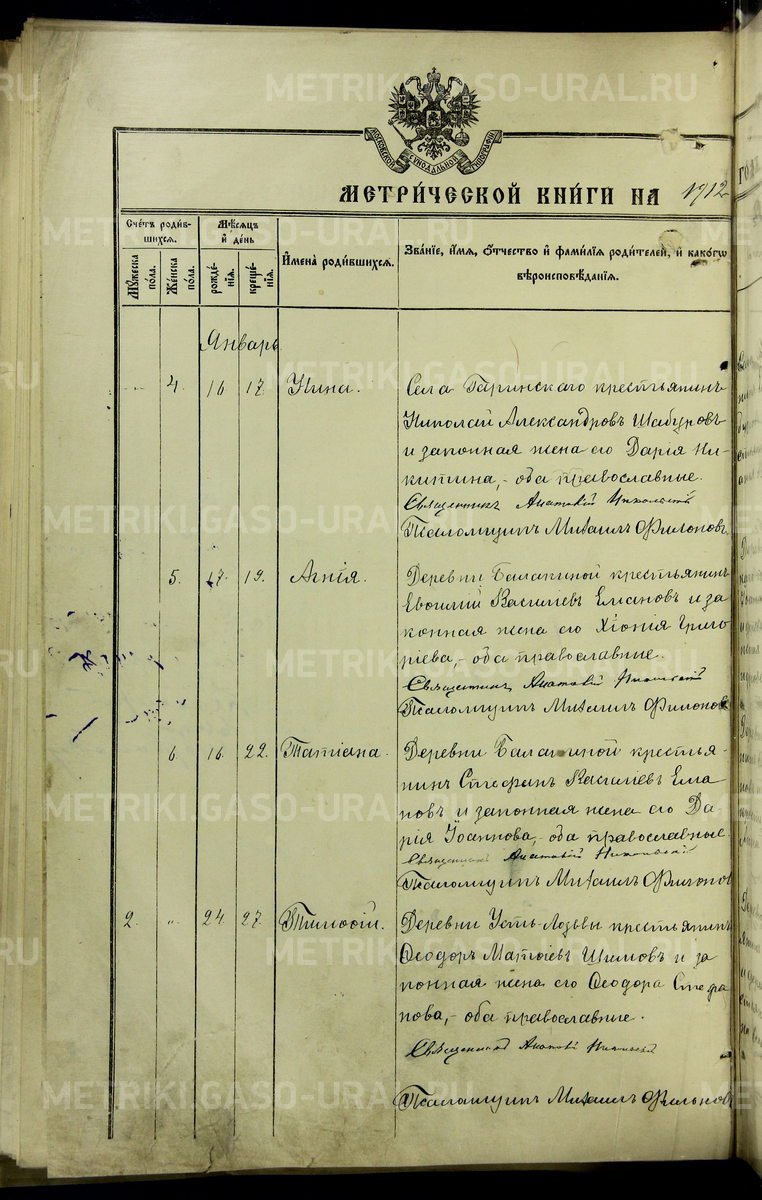 METRIKI.GASO-URAL.RU
МОСКОВСКОЙ СѴНОДАЛЬНОЙ ТИПОГРАФІИ
МЕТРИ́ЧЕСКОЙ КНИ́ГИ НА 1912
Сче́тъ роди́в-
шихся.
Му́жеска по́ла.
Же́нска по́ла.
Мѣ́сяцъ
и҆ де́нь
рожде́-
нїѧ.
креще́-
нїѧ.
И҆мена̀ роди́вшихся.
Зва́нїе, и҆́мѧ, ѻ҆́тчество и҆ фами́лїѧ роди́телей, и҆ како́гѡ
вѣроисповѣ́данїѧ.
Январь
4. 16 17 Нина. Села Гаринскаго крестьянинъ
Николай Александровъ Шабуровъ
и законная жена его Дарія Ни-
китина, - оба православные.
Священникъ Анатолій
Псаломщикъ Михаилъ Филоновъ
5. 17. 19. Агнія. Деревни Балакиной крестьянинъ
Евѳимій Василіевъ Елмановъ и за
конная жена его Хіонія Григо
ріева, - оба православные.
Священникъ Анатолій
Псаломщикъ Михаилъ Филоновъ
6. 16. 22. Татіана. Деревни Балакиной крестья-
нинъ Стефанъ Василіевъ Елма
новъ и законная жена его Да-
рія Іоаннова, - оба православные.
Священникъ Анатолій
Псаломщикъ Михаилъ Филоновъ
2. " 24 27. Тимоѳей. Деревни Усть-Лозьвы крестьянинъ
Ѳеодоръ Матѳіевъ и за
конная жена его Ѳеодора Стефа
нова, - оба православные.
Священникъ Анатолій
Псаломщикъ Михаилъ Филоновъ